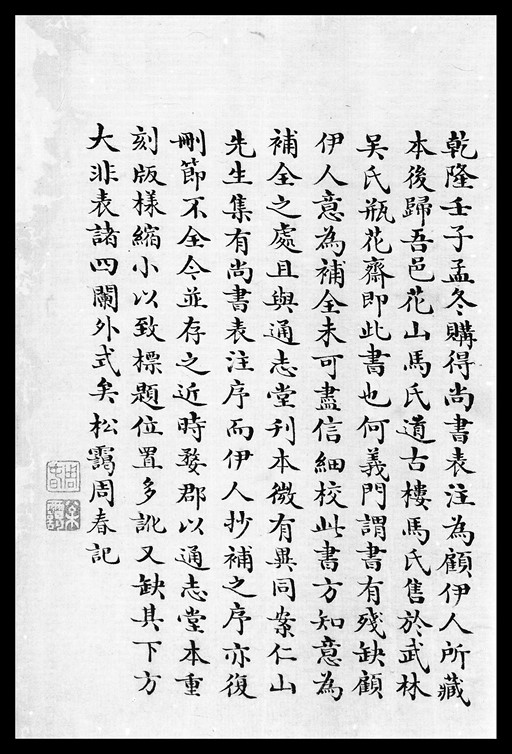 乾隆壬子孟冬購得尚書表注為顧伊人所藏
本後歸吾邑花山馬氏道古樓馬氏售於武林
吴氏瓶花齋即此書也何義門謂書有殘缺顧
伊人意為補全未可盡信細校此書方知意為
補全之處且與通志堂刊本微有異同案仁山
先生集有尚書表注序而伊人抄補之序亦復
刪節不全今並存之近時婺郡以通志堂本重
刻版樣縮小以致標題位置多訛又缺其下方
大非表諸四闌外式矣松靄周春記
周春
松靄